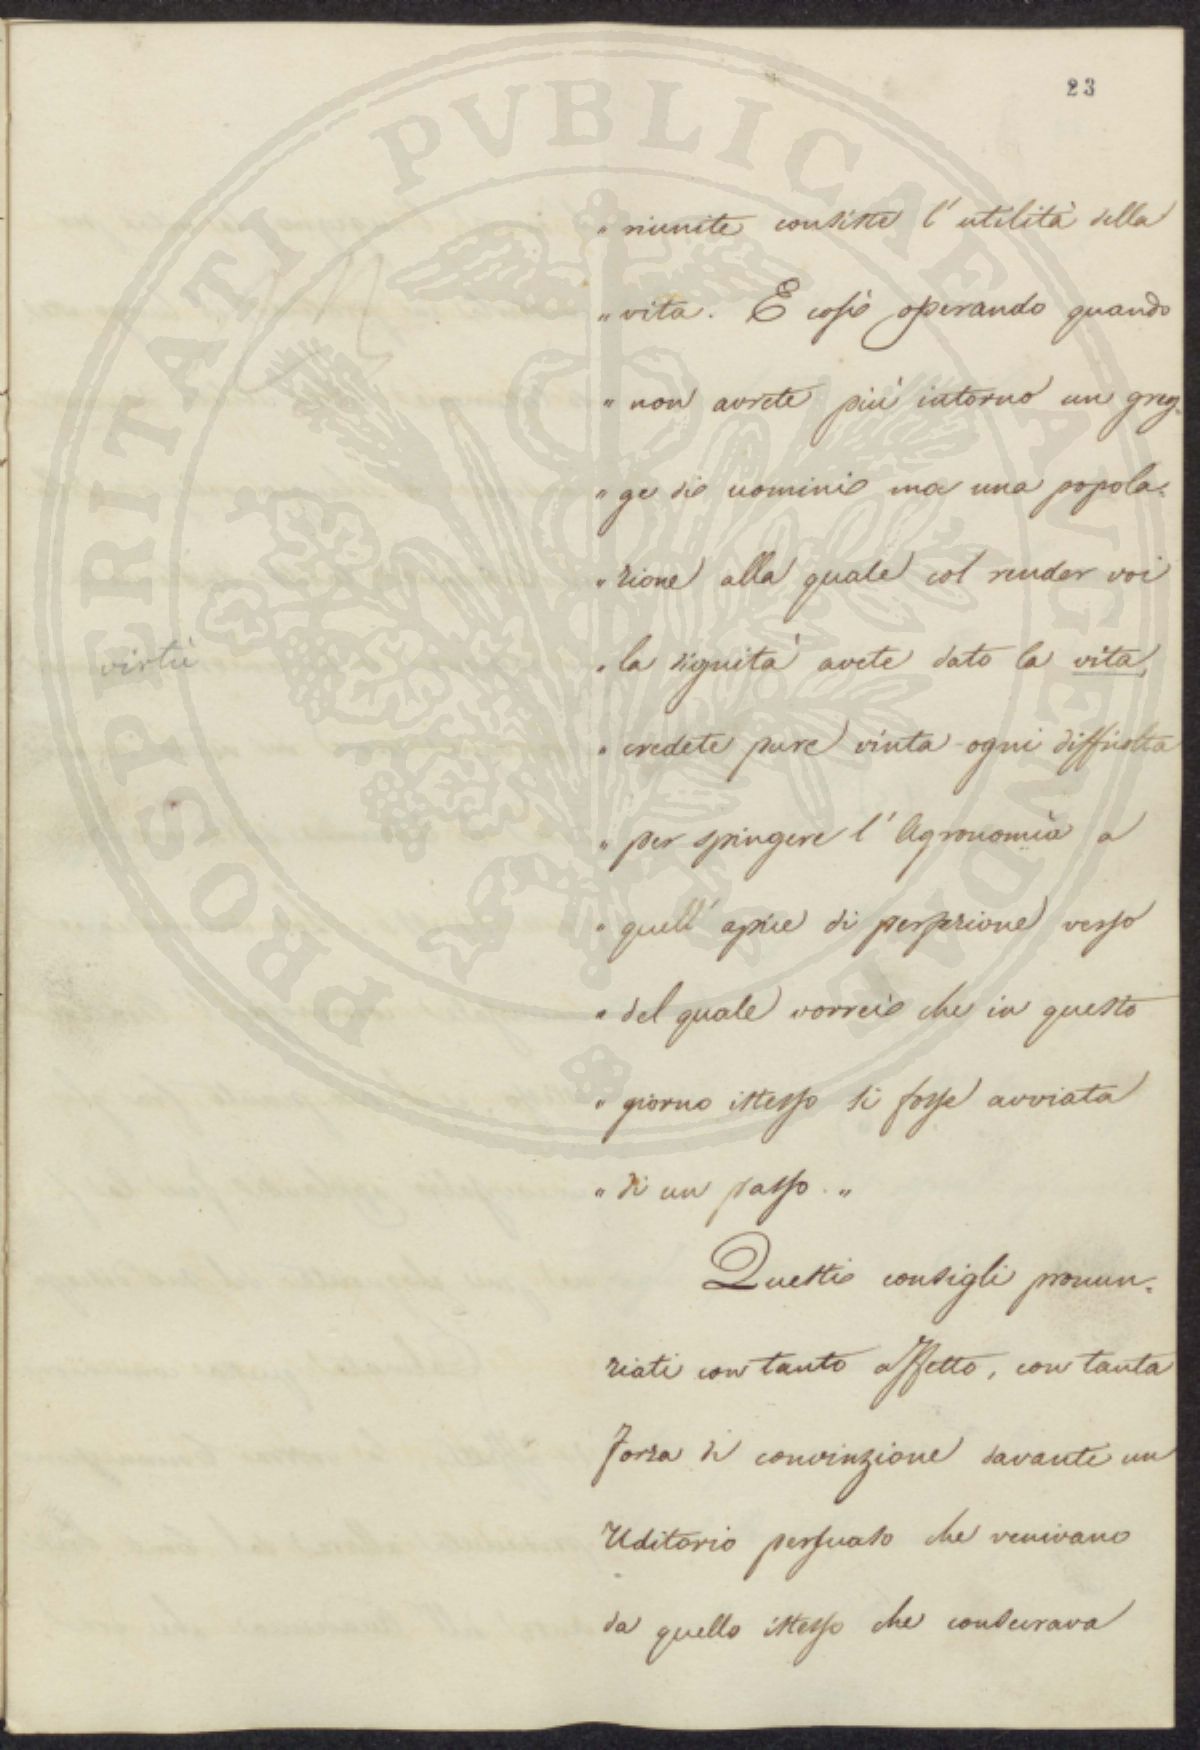 23
" riunite consiste l'utilità della
" vita. E così operando quando
" non avrete più intorno un greg=
" ge di uomini ma una popola=
" zione alla quale col render voi
virtù
" la dignità avete dato la vita,
" credete pure vinta ogni difficolta
" per spingere l'Agronomia a
" quell'apice di perfezione verso
" del quale vorrei che in questo
" giorno istesso si fosse avviata
" di un passo. "
Questi consigli pronun=
ziati con tanto affetto, con tanta
forza di convinzione davante un
Uditorio persuaso che venivano
da quello istesso che consecrava
PROSPERITATI PVBLICAE AVGENDAE